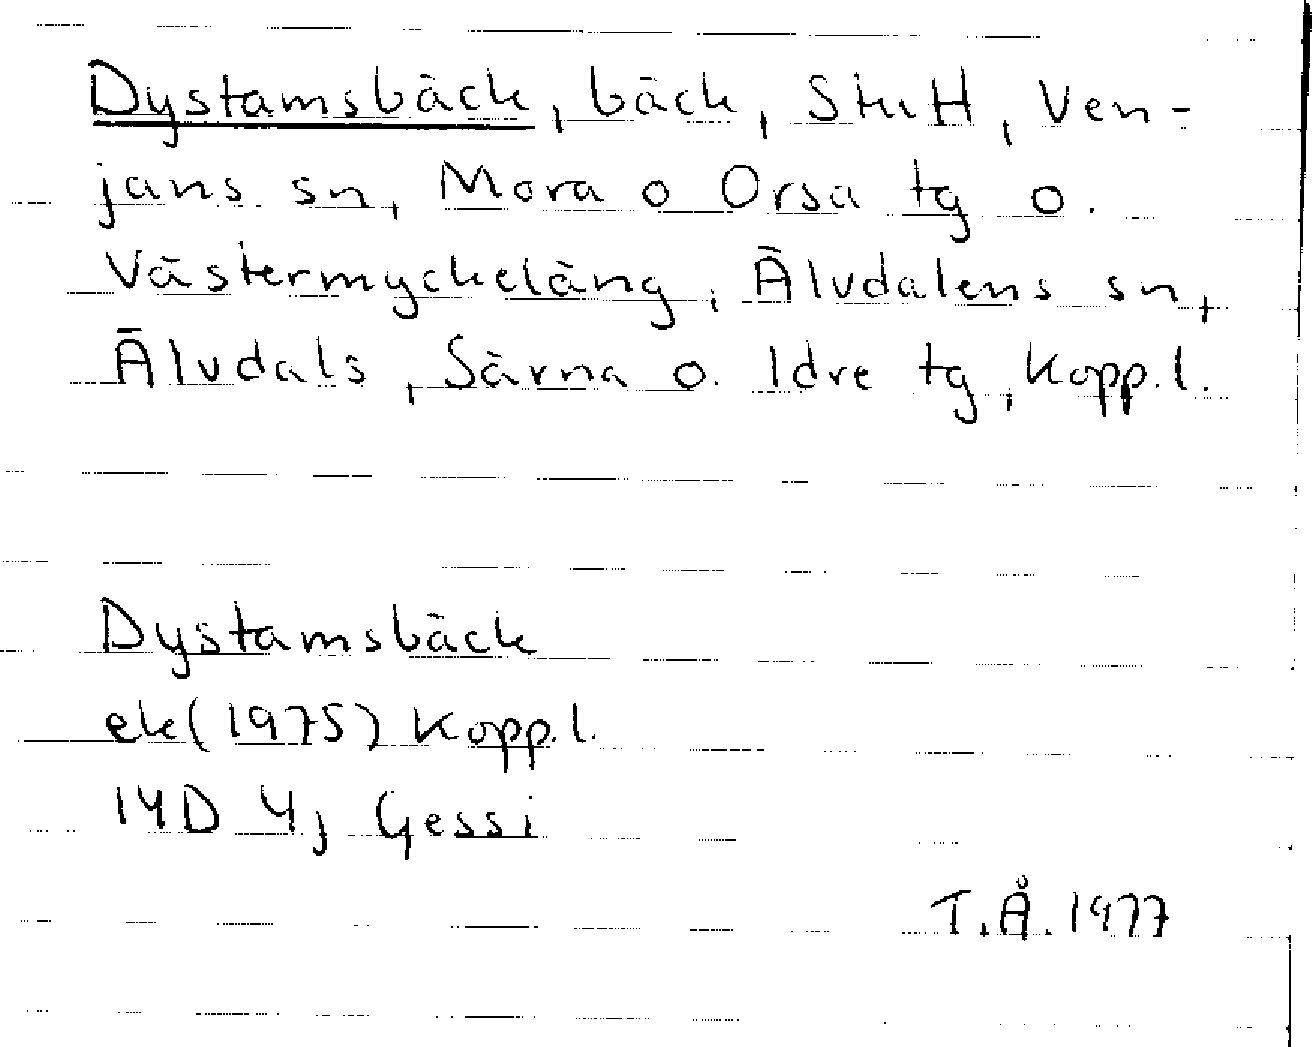 Dystamsbäck, bäck, Ven-
jans sn, Mora o Orsa tg o.
Västermyckeläng, Älvdalens sn,
Älvdals, Särna o. Idre tg, Kopp.l.
Dystamsbäck
ek(1975) Kopp.l.
14D 4j Gessi
T.Å.1977